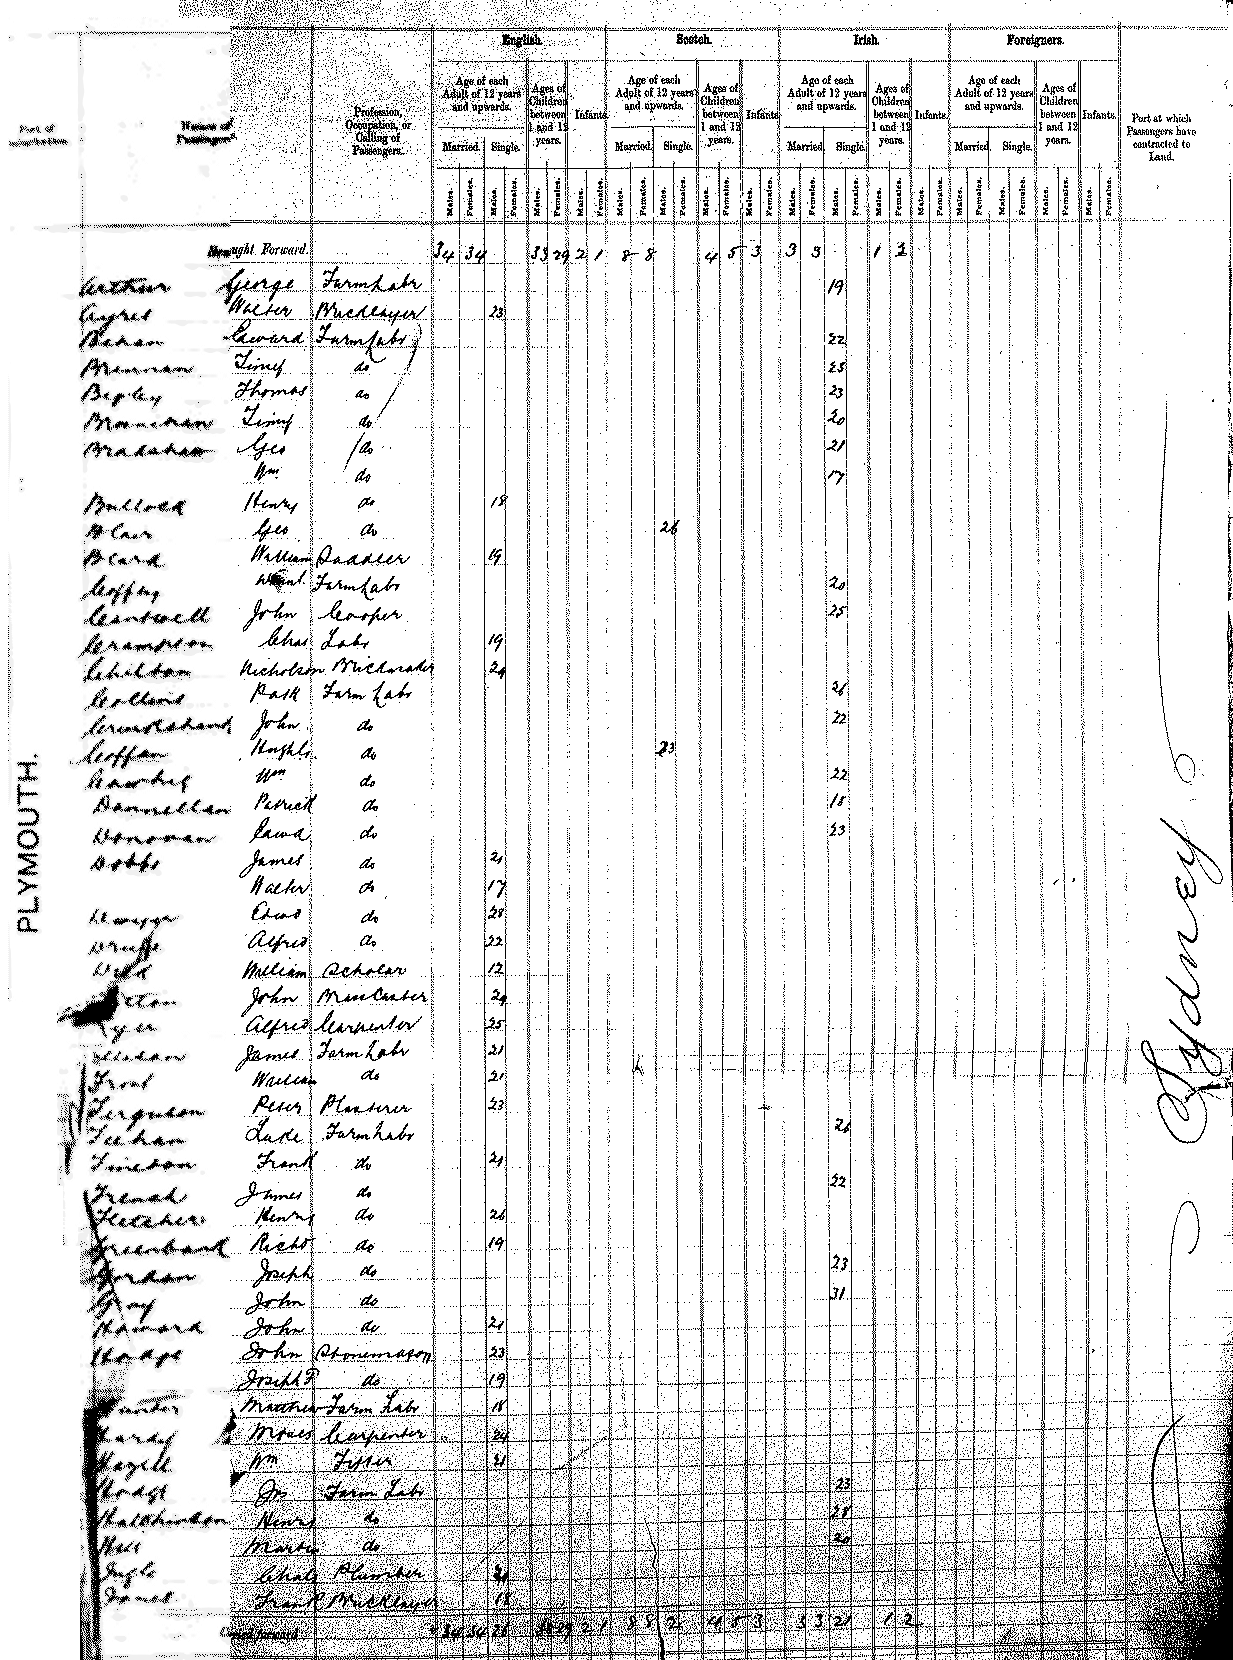 English. Scotch. Irish. Foreigners.
Port of Names of Passengers. Profession, Occupation, or Calling of Passengers. Age of each Adult of 12 years and upwards. Ages of Children between 1 and 12 years. Infants. Age of each Adult of 12 years and upwards. Ages of Children between 1 and 12 years. Infants. Age of each Adult of 12 years and upwards. Ages of Children between 1 and 12 years. Infants. Age of each Adult of 12 years and upwards. Ages of Children between 1 and 12 years. Infants. Port at which Passengers have contracted to Land.
Married. Single. Married. Single. Married. Single. Married. Single.
Males. Females. Males. Females. Males. Females. Males. Females. Males. Females. Males. Females. Males. Females. Males. Females. Males. Females. Males. Females. Males. Females. Males. Females. Males. Females. Males. Females. Males. Females. Males. Females.
Brought Forward. 34 34 33 29 2 1 8 8 4 5 3 3 3 1 2
Arthur George Farm Labr 19
Ayres Walter Bricklayer 23
Behan Edward Farm Labr 22
Brennan Timy do 25
Begley Thomas do 23
Timy do 20
Bradshaw Geo do 21
Wm do 17
Bullock Henry do 18
Blair Geo do 26
Beard William Saddler 19
Coffey Farm Labr 20
Cantwell John Cooper 25
Crampton Chas Labr 19
Chilton Nicholson Brickmaker 24
Collins Patk Farm Labr 26
Cruikshank John do 22
Hugh do 23
Wm do 22
Dannellan Patrick do 18
Donovan Edwd do 23
Dobbs James do 21
Walter do 17
Edwd do 28
Alfred do 22
William Scholar 12
John Brass Caster 24
Alfred Carpenter 25
James Farm Labr 21
Frost William do 21
Ferguson Peter Plasterer 23
Feehan Luke Farm Labr 26
Frank do 21
French James do 22
Fletcher Henry do 26
Greenbank Richd do 19
Gordon Joseph do 23
Gray John do 31
Howard John do 21
Hodge John Stonemason 23
Joseph P do 19
Hunter Matthew Farm Labr 18
Hardy Moses Carpenter 24
Hazell Wm Fitter 21
Jos Farm Labr 23
Hutchinson Henry do 28
Martin do 20
Ingle Chas Plumber 21
Jones Frank Bricklayer 18
Carried forward 34 34 26 33 29 2 1 8 8 2 4 5 3 3 3 21 1 2
PLYMOUTH.
Sydney